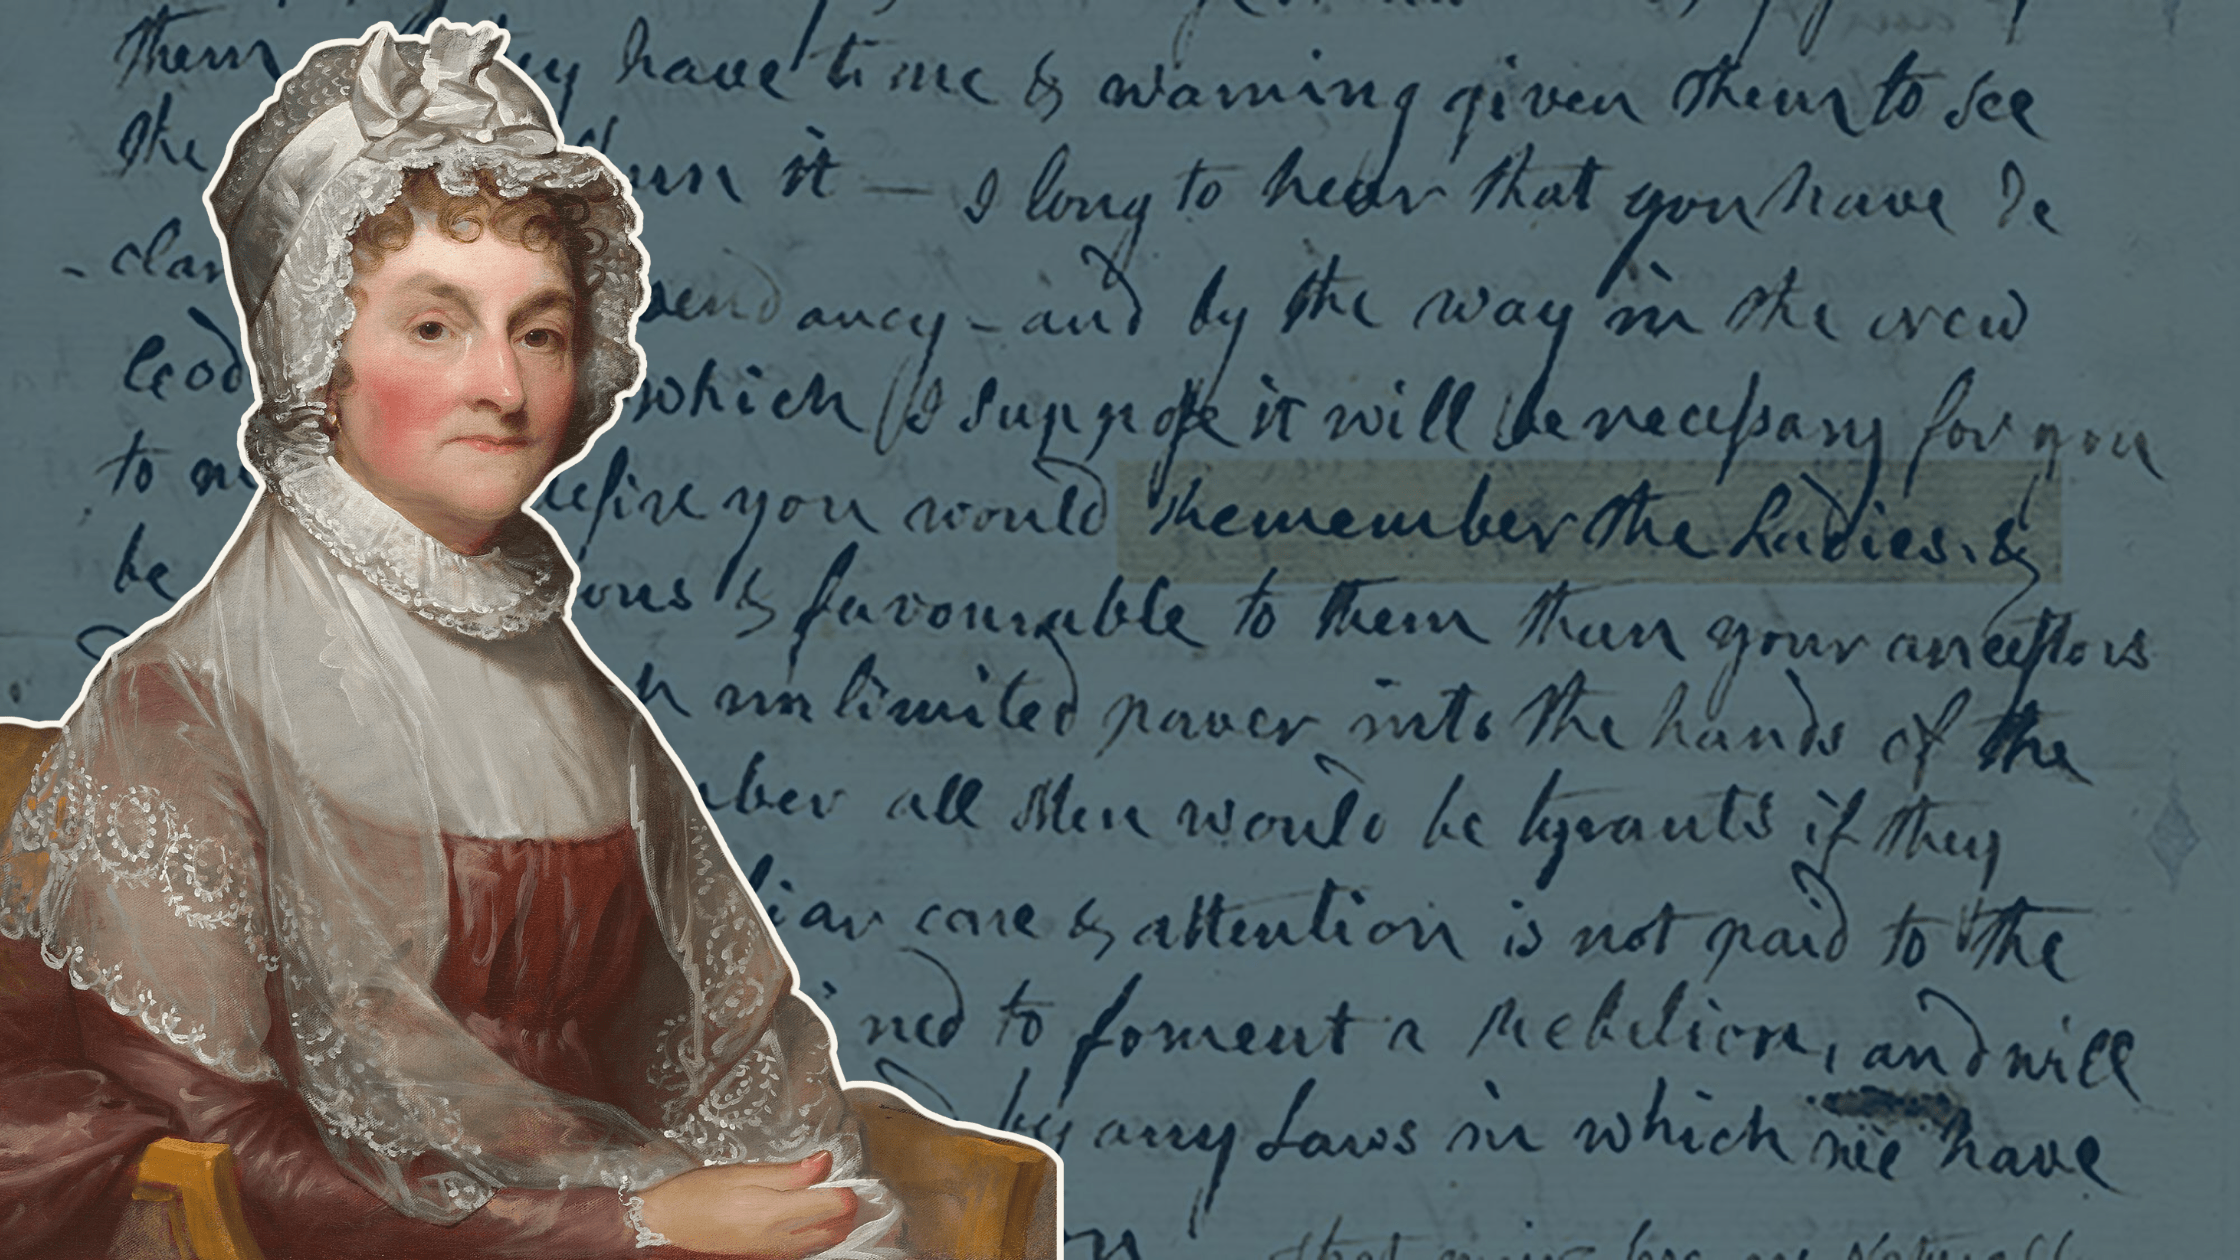 them they have time & warning given them to see
the urn it — I long to hear that you have de
-clar pendancy - and by the way in the new
Cod which I suppose it will be necessary for you
to m desire you would Remember the Ladies, &
be ous & favourable to them than your ancestors
h unlimited power into the hands of the
mber all Men would be tyrants if they
liar care & attention is not paid to the
ined to foment a Rebelion, and will
by any Laws in which we have